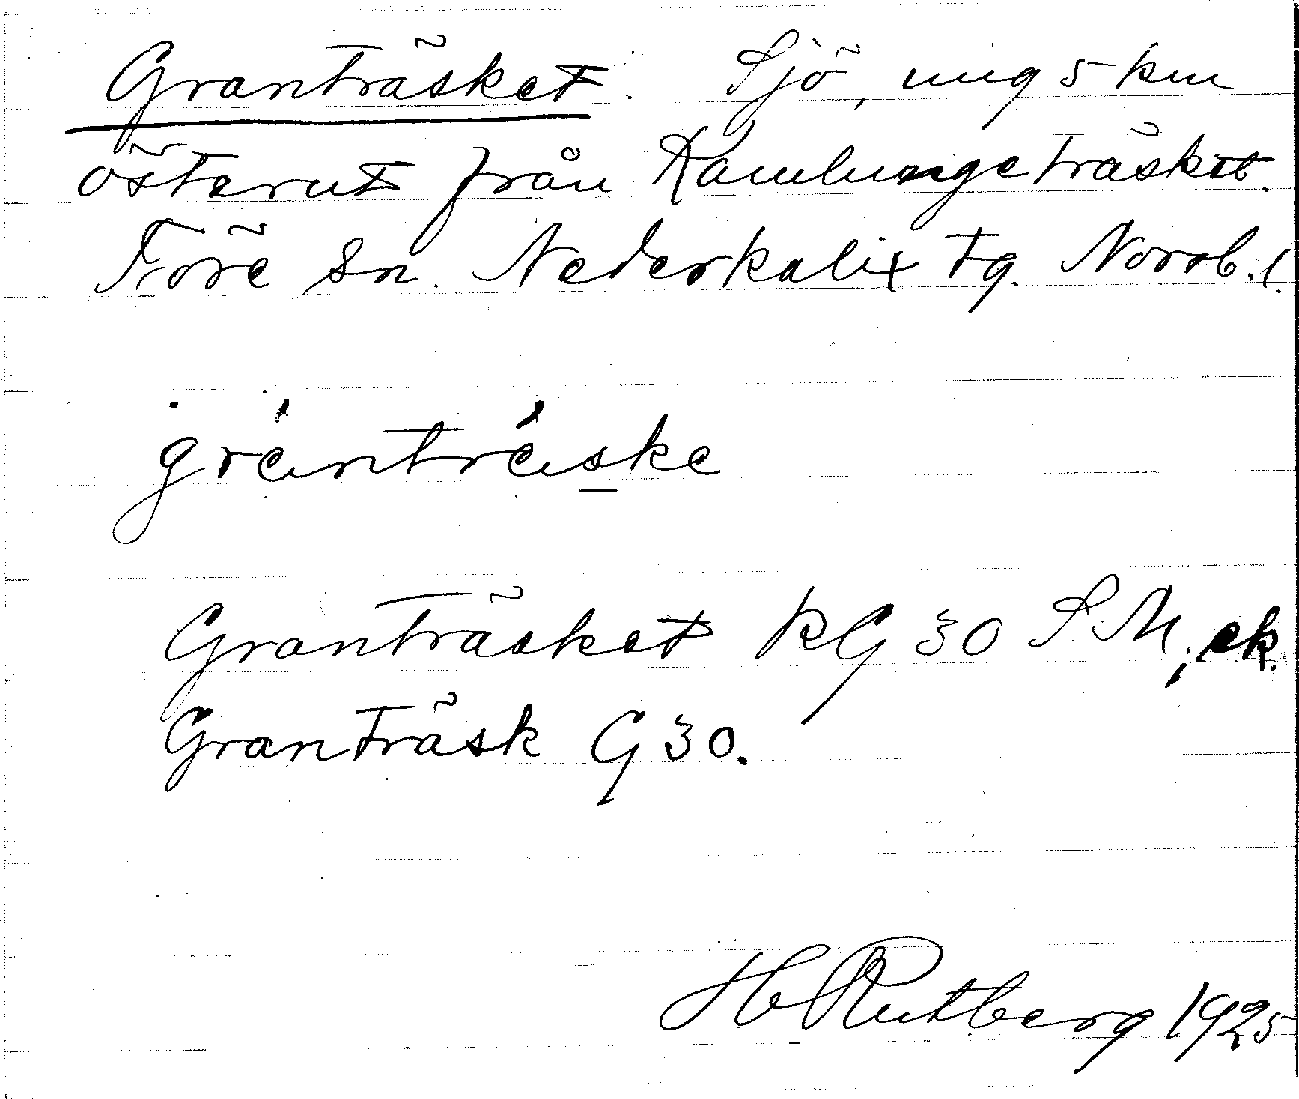 Granträsket. Sjö, ung 5 km
österut från Kamlungeträsket.
Töre sn. Nederkalix tg. Norrb. l.
gràntrǽske
Granträsket kG 30 S.M; ek.
Granträsk G 30.
H Rutberg 1925